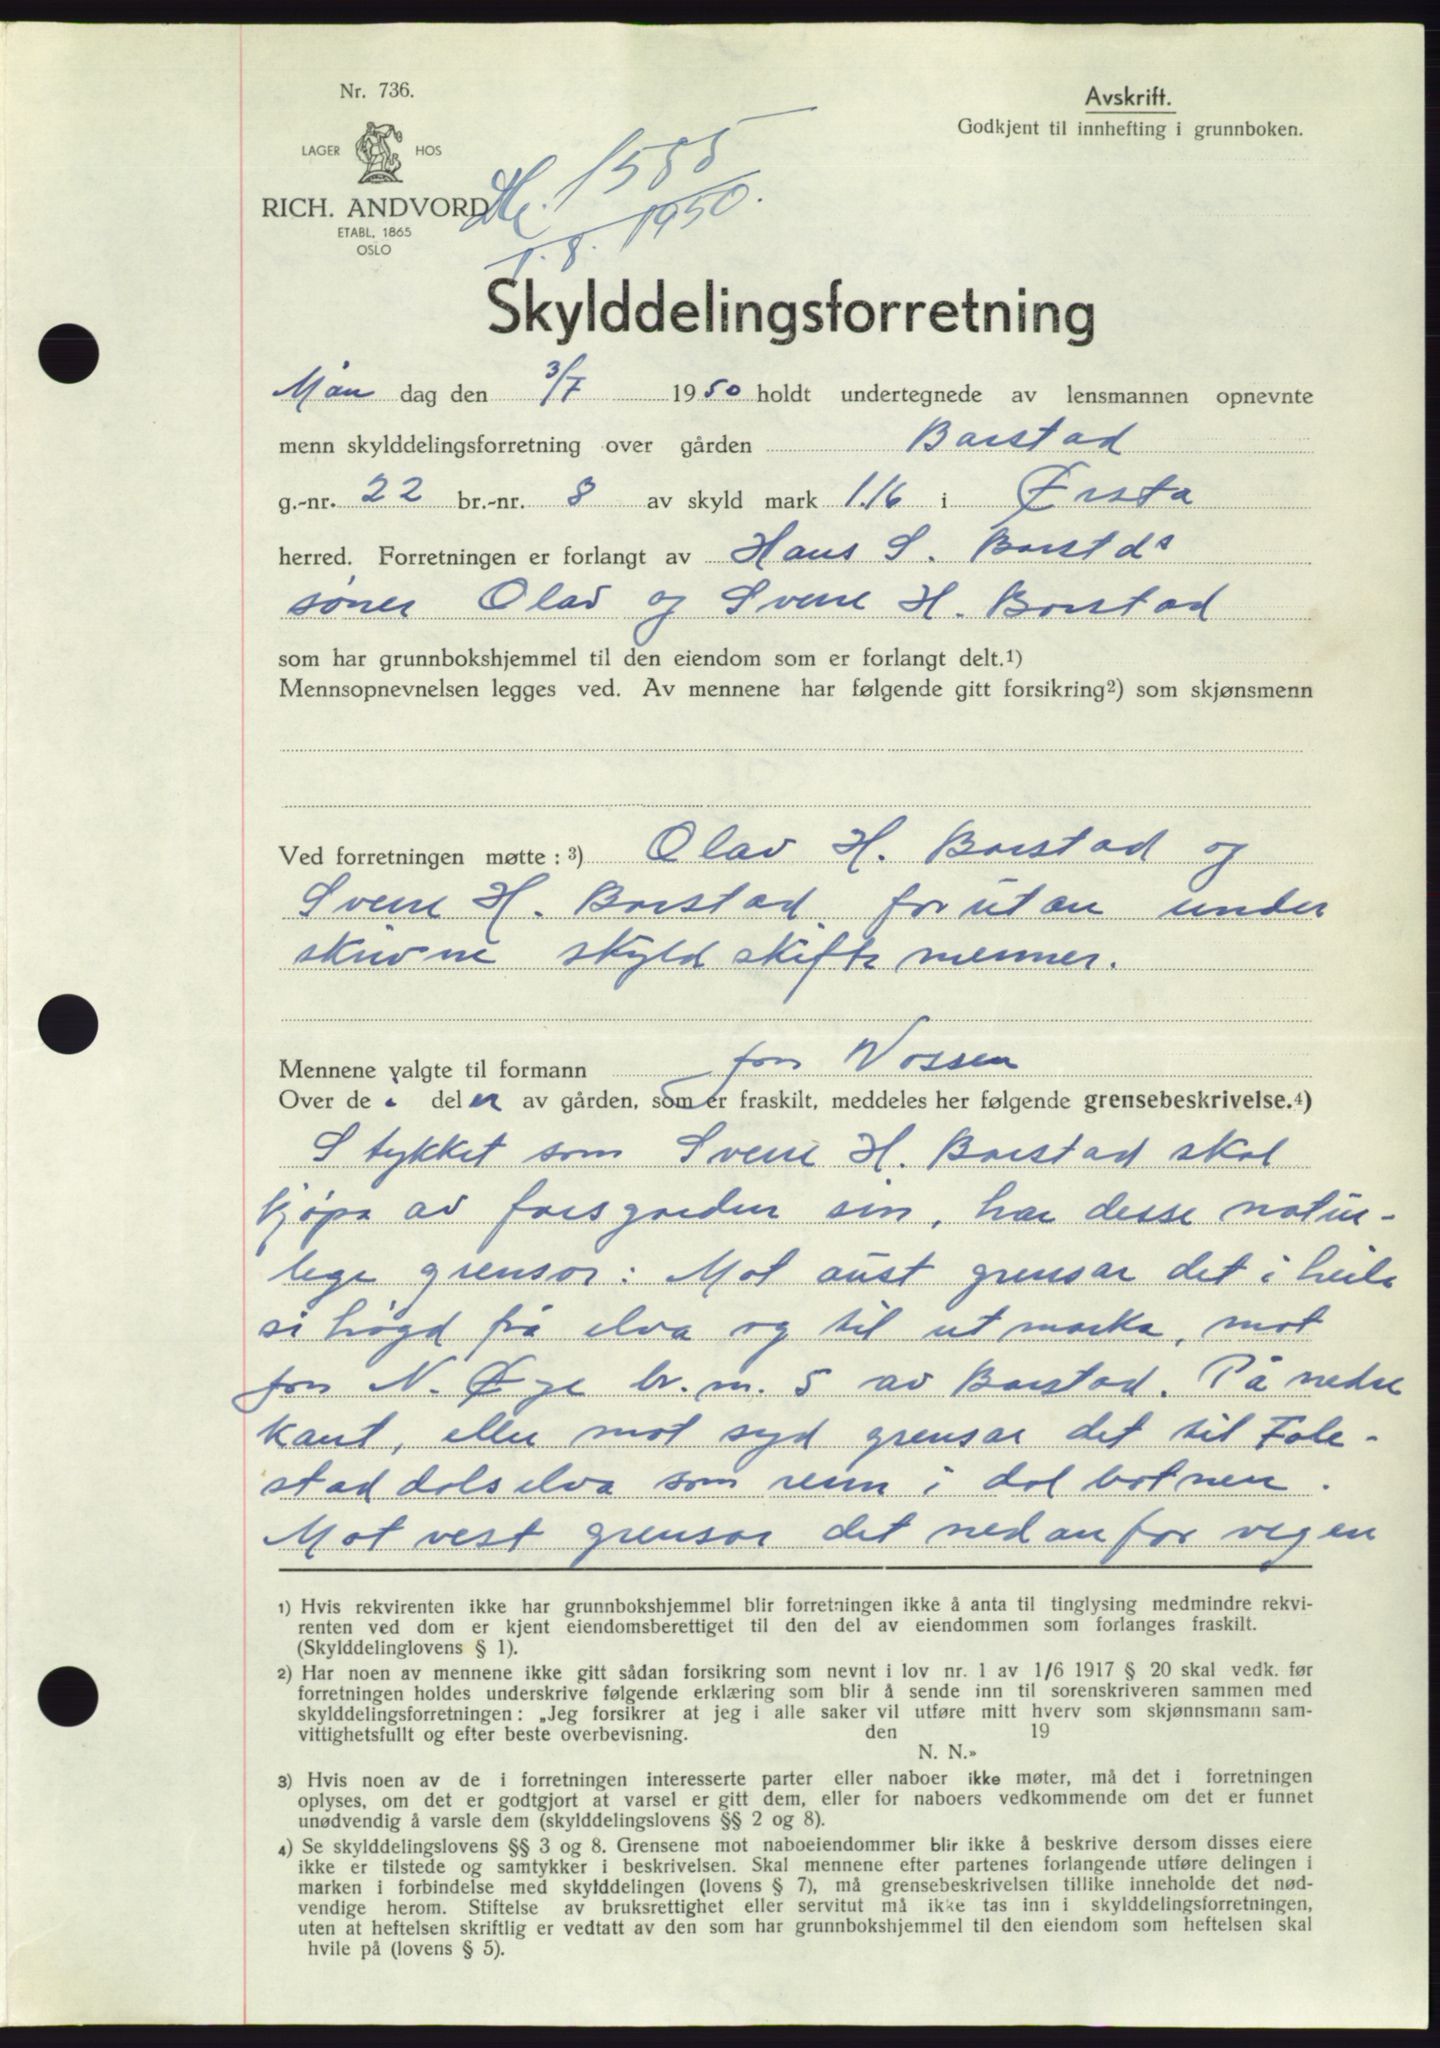 Nr. 736.
LAGER HOS
RICH. ANDVORD
ETABL. 1865
OSLO
Avskrift.
Godkjent til innhefting i grunnboken.
1555
1.8. 1950.
Skylddelingsforretning
Mån dag den 3/7 1950 holdt undertegnede av lensmannen opnevnte
menn skylddelingsforretning over gården Barstad
g.-nr. 22 br.-nr. 8 av skyld mark 1.16 i Ørsta
herred. Forretningen er forlangt av Hans S. Barstds
søner Olav og Sverre H. Barstad
som har grunnbokshjemmel til den eiendom som er forlangt delt.1)
Mennsopnevnelsen legges ved. Av mennene har følgende gitt forsikring2) som skjønsmenn
Ved forretningen møtte: 3) Olav H. Barstad og
Sverre H. Barstad forutan under
skrivne skyldskiftemenner.
Mennene valgte til formann Jon Vossen
Over de i deler av gården, som er fraskilt, meddeles her følgende grensebeskrivelse.4)
Stykket som Sverre H. Barstad skal
kjøpa av farsgarden sin, har desse natur-
lege grensor: Mot aust grensar det i heile
si høgd frå elva og til utmarka, mot
Jon N. Øye br. nr. 5 av Barstad. På nedre
kant, eller mot syd grensar det til Fole-
staddalselva som renn i dalbotnen.
Mot vest grensar det nedanfor vegen
1) Hvis rekvirenten ikke har grunnbokshjemmel blir forretningen ikke å anta til tinglysing medmindre rekvi-
renten ved dom er kjent eiendomsberettiget til den del av eiendommen som forlanges fraskilt.
(Skylddelinglovens § 1).
2) Har noen av mennene ikke gitt sådan forsikring som nevnt i lov nr. 1 av 1/6 1917 § 20 skal vedk. før
forretningen holdes underskrive følgende erklæring som blir å sende inn til sorenskriveren sammen med
skylddelingsforretningen: „Jeg forsikrer at jeg i alle saker vil utføre mitt hverv som skjønnsmann sam-
vittighetsfullt og efter beste overbevisning. den 19
N. N.»
3) Hvis noen av de i forretningen interesserte parter eller naboer ikke møter, må det i forretningen
oplyses, om det er godtgjort at varsel er gitt dem, eller for naboers vedkommende om det er funnet
unødvendig å varsle dem (skylddelingslovens §§ 2 og 8).
4) Se skylddelingslovens §§ 3 og 8. Grensene mot naboeiendommer blir ikke å beskrive dersom disses eiere
ikke er tilstede og samtykker i beskrivelsen. Skal mennene efter partenes forlangende utføre delingen i
marken i forbindelse med skylddelingen (lovens § 7), må grensebeskrivelsen tillike inneholde det nød-
vendige herom. Stiftelse av bruksrettighet eller servitut må ikke tas inn i skylddelingsforretningen,
uten at heftelsen skriftlig er vedtatt av den som har grunnbokshjemmel til den eiendom som heftelsen skal
hvile på (lovens § 5).